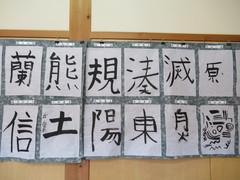 蘭 熊 規 湊 滅 原
信 土 陽 東